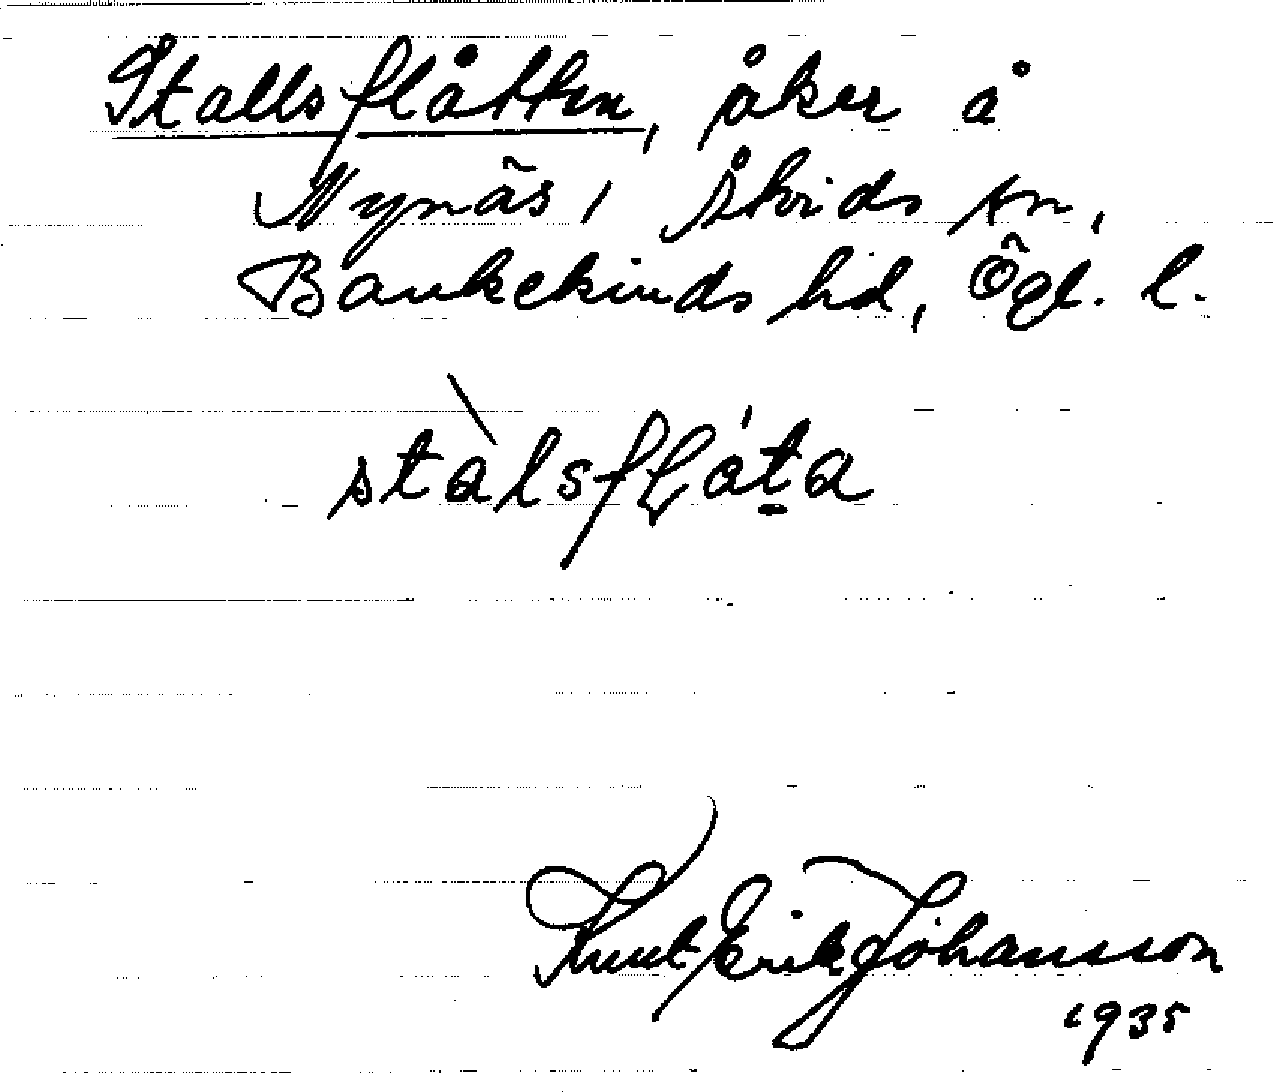 Stallsflåtten, åker å
Nynäs, Åtvids sn,
Bankekinds hd, Ögl. l.
stàlsfḷátạ
Knut Erik Johansson
1935